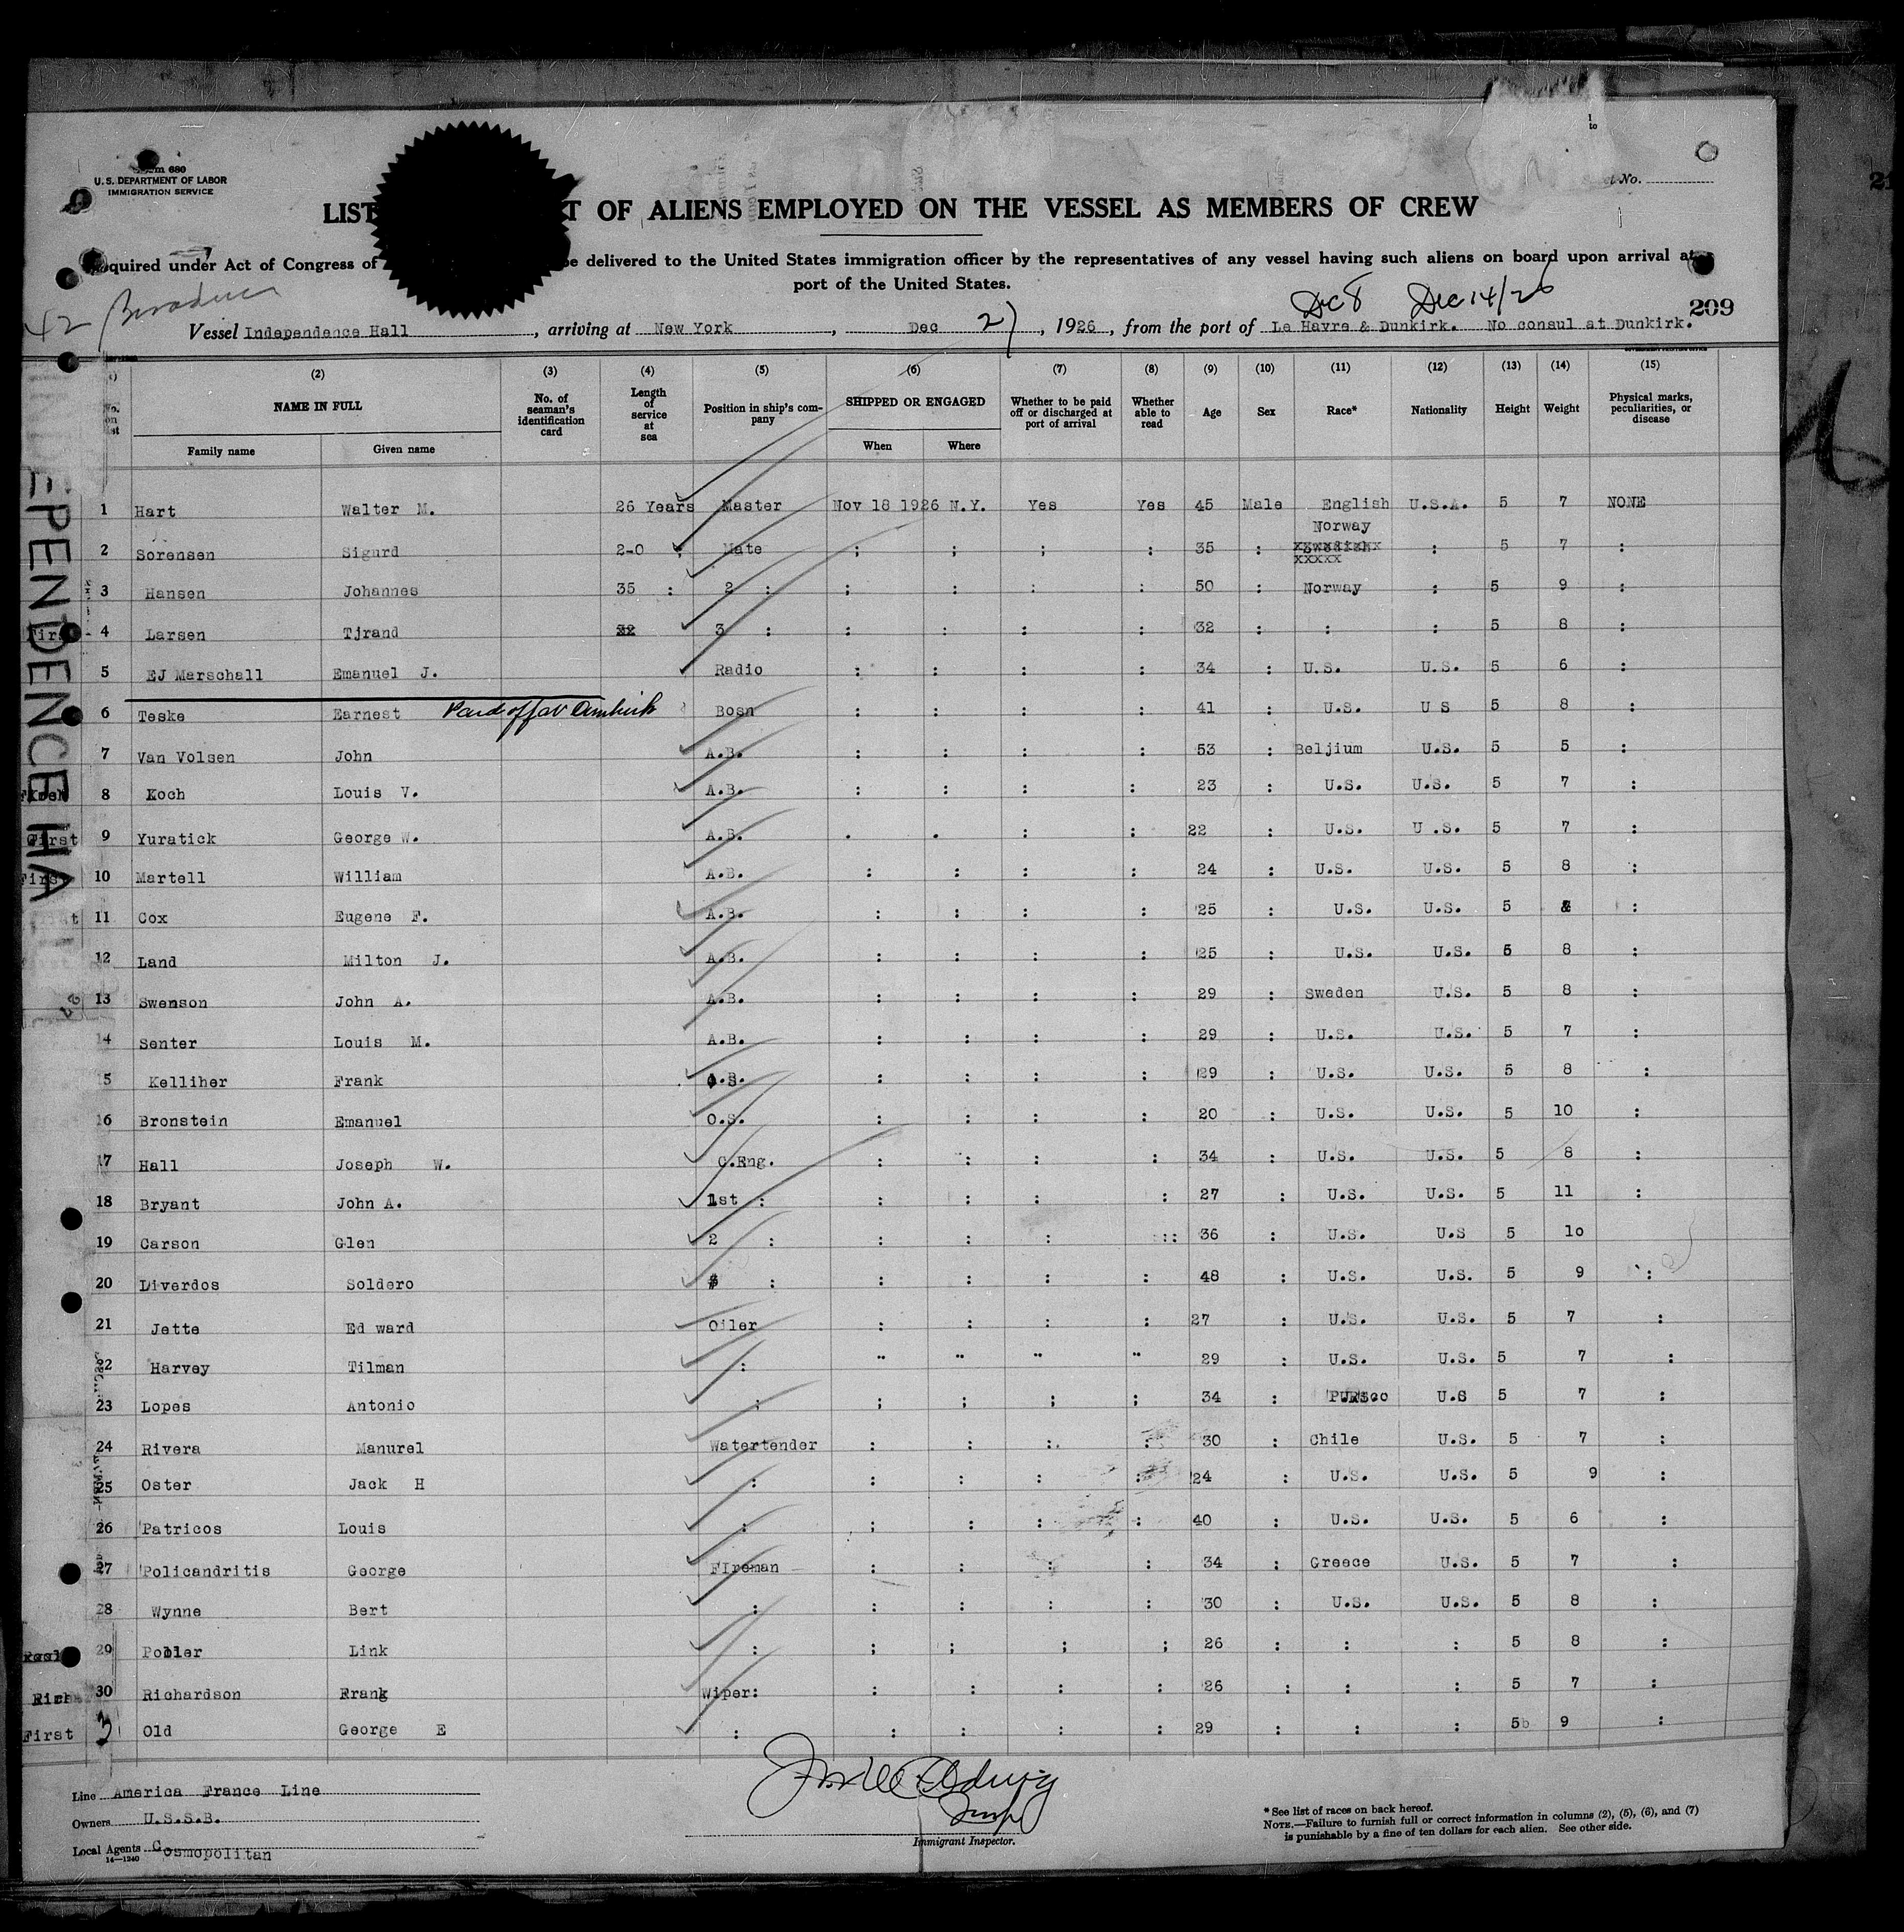 Form 680
U.S. DEPARTMENT OF LABOR
IMMIGRATION SERVICE
No.
LIST T OF ALIENS EMPLOYED ON THE VESSEL AS MEMBERS OF CREW
Required under Act of Congress of be delivered to the United States immigration officer by the representatives of any vessel having such aliens on board upon arrival at
port of the United States.
42
Dec 8 Dec 14/26
209
Vessel Independence Hall, arriving at New York, Dec 27, 1926, from the port of Le Havre & Dunkirk. No consul at Dunkirk.
(2) (3) (4) (5) (6) (7) (8) (9) (10) (11) (12) (13) (14) (15)
No. on list NAME IN FULL Family name Given name No. of seaman's identification card Length of service at sea Position in ship's company SHIPPED OR ENGAGED When Where Whether to be paid off or discharged at port of arrival Whether able to read Age Sex Race* Nationality Height Weight Physical marks, peculiarities, or disease
1 Hart Walter M. 26 Years Master Nov 18 1926 N.Y. Yes Yes 45 Male English U.S.A. 5 7 NONE
Norway
2 Sorensen Sigurd 2-0 : Mate : : : : 35 : : 5 7 :
3 Hansen Johannes 35 : 2 : : : : : 50 : Norway : 5 9 :
4 Larsen Tjrand 32 3 : : : : : 32 : : : 5 8 :
5 EJ Marschall Emanuel J. Radio : : : : 34 : U.S. U.S. 5 6 :
6 Teske Earnest Paid off at Dunkirk Bosn : : : : 41 : U.S. U S 5 8 :
7 Van Volsen John A.B. : : : : 53 : Beljium U.S. 5 5 :
8 Koch Louis V. A.B. : : : : 23 : U.S. U.S. 5 7 :
9 Yuratick George W. A.B. . . : : 22 : U.S. U .S. 5 7 :
10 Martell William A.B. : : : : 24 : U.S. U.S. 5 8 :
11 Cox Eugene F. A.B. : : : : 25 : U.S. U.S. 5 :
12 Land Milton J. A.B. : : : : 25 : U.S. U.S. 5 8 :
13 Swenson John A. A.B. : : : : 29 : Sweden U.S. 5 8 :
14 Senter Louis M. A.B. : : : : 29 : U.S. U.S. 5 7 :
15 Kelliher Frank : : : : 29 : U.S. U.S. 5 8 :
16 Bronstein Emanuel O.S. : : : : 20 : U.S. U.S. 5 10 :
17 Hall Joseph W. C.Eng. : : : : 34 : U.S. U.S. 5 8 :
18 Bryant John A. 1st : : : : : 27 : U.S. U.S. 5 11 :
19 Carson Glen 2 : : : : ::: 36 : U.S. U.S 5 10
20 Liverdos Soldero : : : : : 48 : U.S. U.S. 5 9 :
21 Jette Ed ward Oiler : : : : 27 : U.S. U.S. 5 7 :
22 Harvey Tilman : " " " " 29 : U.S. U.S. 5 7 :
23 Lopes Antonio ; ; ; ; ; 34 : U.S 5 7 :
24 Rivera Manurel Watertender : : : : 30 : Chile U.S. 5 7 :
25 Oster Jack H : : : : : 24 : U.S. U.S. 5 9 :
26 Patricos Louis : : : : : 40 : U.S. U.S. 5 6 :
27 Policandritis George FIreman : : : : 34 : Greece U.S. 5 7 :
28 Wynne Bert : : : : : 30 : U.S. U.S. 5 8 :
29 Link : ; ; ; ; 26 : : : 5 8 :
30 Richardson Frank Wiper: : : : : 26 : : : 5 7 :
3 Old George E : : : : : 29 : : : 5 9 :
First
First
First
First
INDEPENDENCE HA
Line America France Line
Owners U.S.S.B.
Local Agents Cosmopolitan
14—1240
Insp
Immigrant Inspector.
* See list of races on back hereof.
NOTE.—Failure to furnish full or correct information in columns (2), (5), (6), and (7)
is punishable by a fine of ten dollars for each alien. See other side.